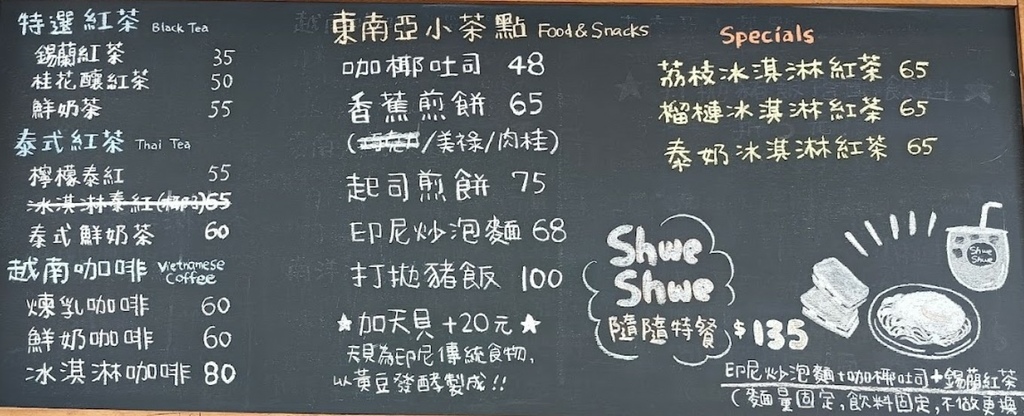 特選紅茶 Black Tea
錫蘭紅茶 35
桂花釀紅茶 50
鮮奶茶 55
泰式紅茶 Thai Tea
檸檬泰紅 55
冰淇淋泰紅(椰子)65
泰式鮮奶茶 60
越南咖啡 Vietnamese Coffee
煉乳咖啡 60
鮮奶咖啡 60
冰淇淋咖啡 80
東南亞小茶點 Food & Snacks
咖椰吐司 48
香蕉煎餅 65
(/美祿/肉桂)
起司煎餅 75
印尼炒泡麵 68
打拋豬飯 100
★加天貝+20元★
天貝為印尼傳統食物,
以黃豆發酵製成!!
Specials
荔枝冰淇淋紅茶 65
榴槤冰淇淋紅茶 65
泰奶冰淇淋紅茶 65
Shwe
Shwe
隨隨特餐 $135
Shwe
Shwe
印尼炒泡麵+咖椰吐司+錫蘭紅茶
(麵量固定,飲料固定,不做更換